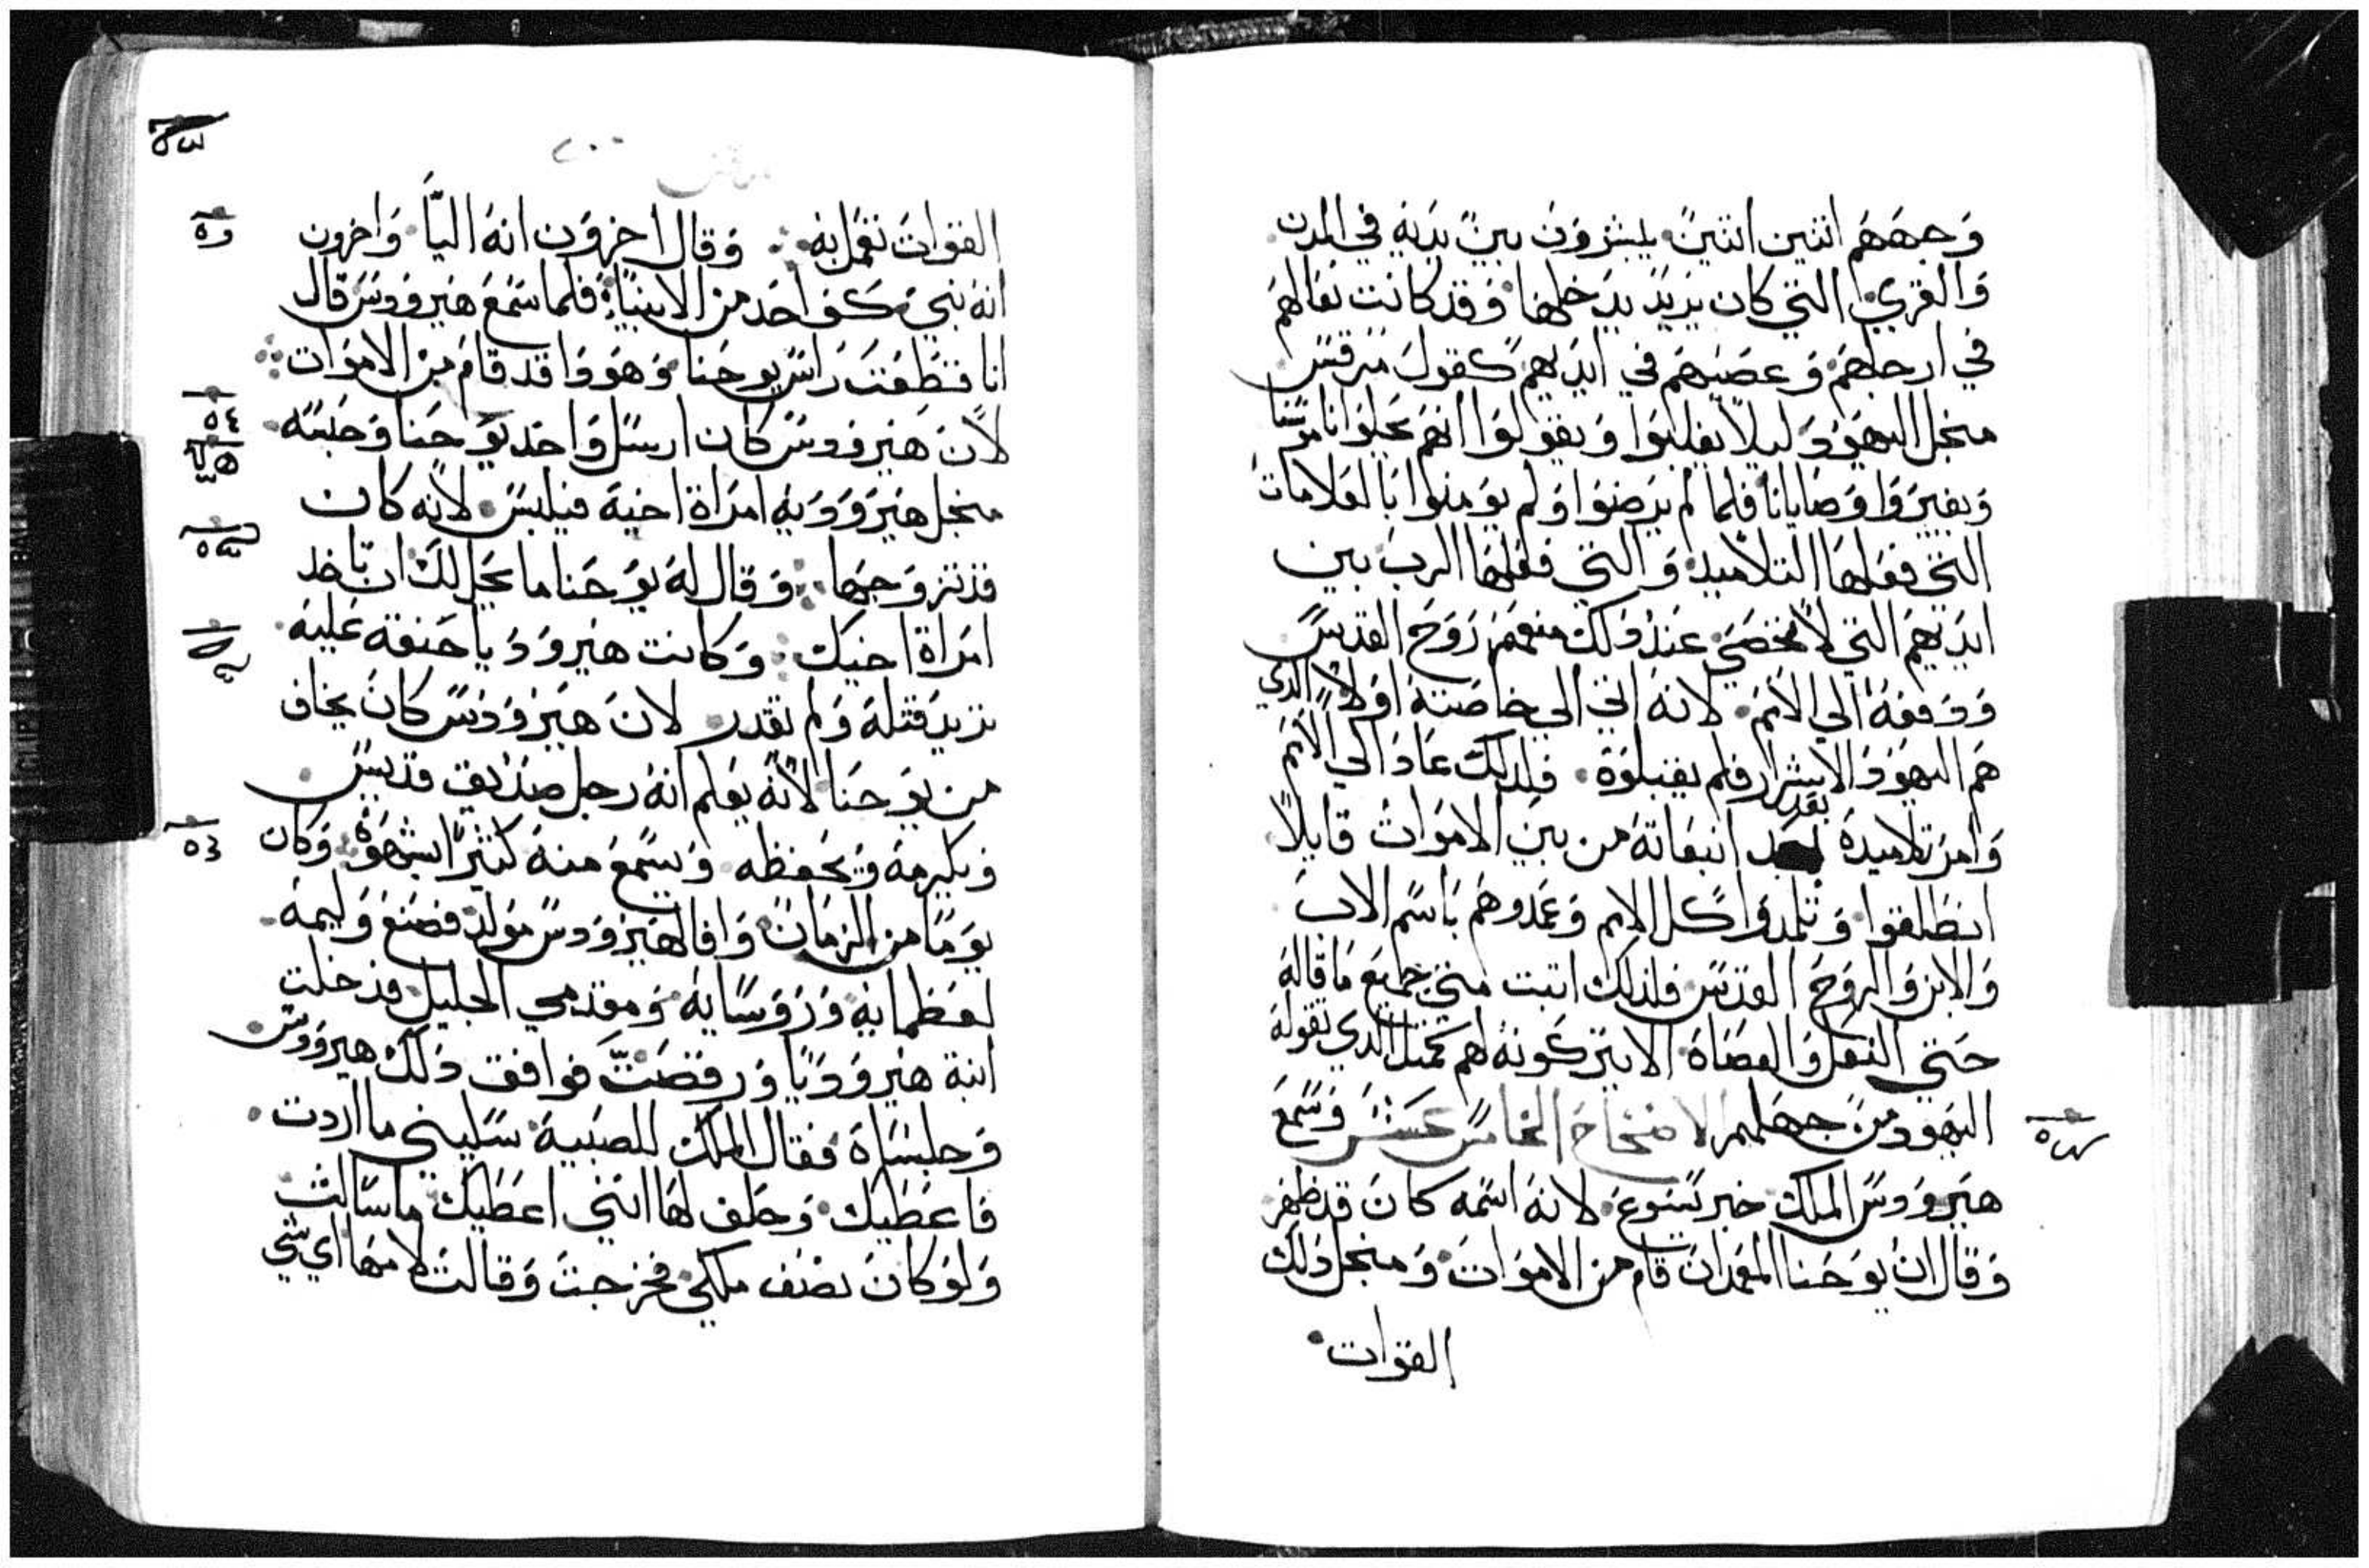 وجههم اثنين اثنين يبشرون بين يديه في المدن
والقري التي كان يريد يدخلها وقد كانت نعالهم
في ارجلهم وعصيهم في ايديهم كقول مرقس
منجل اليهود ليلا يغلبوا ويقولوا انهم يحلوا ناموسنا
ويغيروا وصايانا فلما لم يرضوا ولم يومنوا بالعلامات
التي فعلها التلاميد والتي فعلها الرب بين
ايديهم التي لا تحصي عند دلك منعهم روح القدس
ودفعه الي الامم لانه اتي الي خاصته اولا الدي
هم اليهود الاشرار فلم يقبلوه فلدلك عاد الي الامم
وامر تلاميده بعد انبعاثه من بين الاموات قايلا
انطلقوا وتلمدوا كل الامم وعمدوهم باسم الاب
والابن والروح القدس فلدلك اتبت متي جميع ما قاله
حتي النعل والعصاة الا يتركونه لهم كمتل الدي تقوله
اليهود من جهلهم الاصحاح الخامس عشر وسمع
هيرودس الملك خبر يسوع لانه اسمه كان قد ظهر
وقال ان يوحنا المعمدان قام من الاموات ومنجل دلك
القوات
القوات تعمل به وقال اخرون انه اليا واخرون
انه نبي كف احد من الانبيا فلما سمع هيرودس قال
انا قطعت راس يوحنا وهودا قد قام من الاموات
٥٤
لان هيرودس كان ارسل واخد يوحنا وحبسه
منجل هيروديه امراة اخيه فيلبس لانه كان
قد تزوجها وقال له يوحنا ما يحل لك ان تاخد
امراة اخيك وكانت هيروديا حنقه عليه
تريد قتله ولم تقدر لان هيرودس كان يخاف
من يوحنا لانه يعلم انه رجل صديق قديس
ويكرمه ويحفظه ويسمع منه كثيرا بشهوة وكان
يوما من الزمان وافا لهيرودس مولد فصنع وليمه
لعظمايه وروسايه ومقدمي الجليل فدخلت
ابنة هيروديا ورقصت فوافق دلك هيرودس
وجلساه فقال الملك للصبية سليني ما اردت
فاعطيك وحلف لها انني اعطيك ما سالت
ولو كان نصف ملكي فخرجت وقالت لامها اي شي